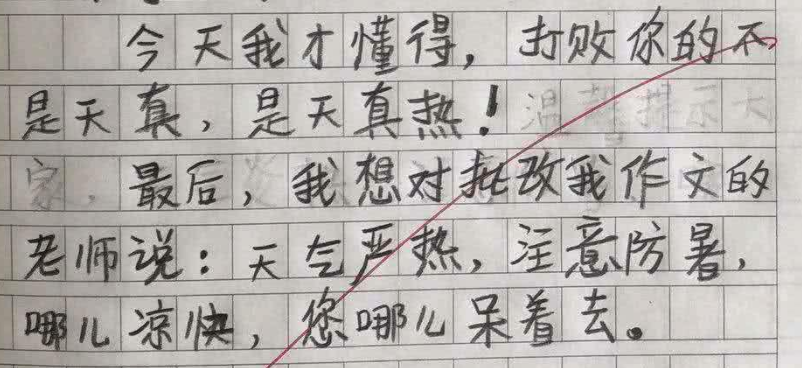 今天我才懂得，打败你的不
是天真，是天真热！温馨提示大
家，最后，我想对批改我作文的
老师说：天气严热，注意防暑，
哪儿凉快，您哪儿呆着去。